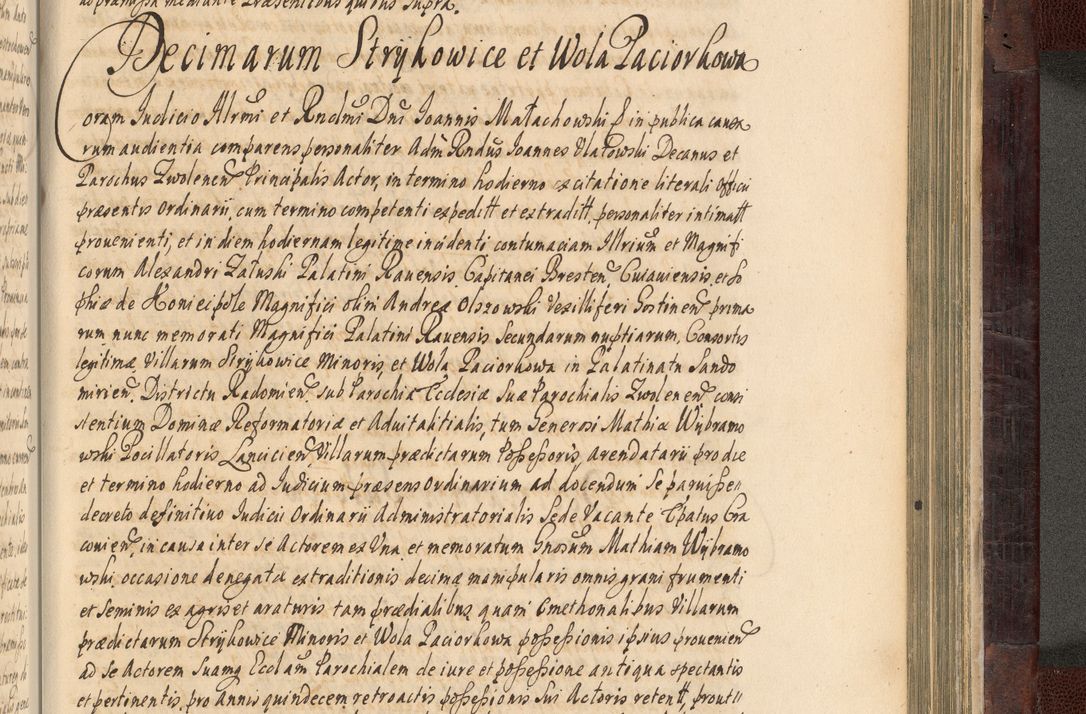 Decimarum Strykowice et Wola Paciorkowa
Coram Iudicio Illrmi et Rndmi Dni Ioannis Małachowski in publica causa
rum audientia comparens personaliter Adm Rndus Ioannes Decanus et
Parochus Zwolenen Principalis Actor, in termino hodierno ex citatione literali Officii
præsentis Ordinarii, cum termino competenti expeditt et extraditt, personaliter intimatt
prouenienti, et in diem hodiernam legitime incidenti contumaciam Illrium et Magnifi
corum Alexandri Załuski Palatini Rauensis Capitanei Bresten, Cuiauiensis, et So
phiæ de Koniecpole Magnifici olim Andreæ Olszowski Vexilliferi Gostinen prima
rum nunc memorati Magnifici Palatini Rauensis Secundarum nuptiarum, Consortis
legitimæ, Villarum Stryhowice Minoris, et Wola Paciorkowa in Palatinatu Sando
mirien, Districtu Radomien, sub Parochia Ecclesiæ Suæ Parochialis Zwolenen, consi
stentium Dominæ Reformatoriæ et Aduitalitialis, tum Generosi Mathiæ Wybramo
wski Pocillatoris Lancicien, Villarum prædictarum Possessoris, arendatarii pro die
et termino hodierno ad Iudicium præsens Ordinarium ad docendum se paruisse
decreto definitiuo Iudicii Ordinarii Administratorialis Sede Vacante Epatus Cra
couien, in causa inter se Actorem ex Vna, et memoratum Gnosum Mathiam Wybramo
wski, occasione denegatæ extraditionis decimæ manipularis omnis grani frumenti
et Seminis ex agris et araturis tam prædialibus quam Cmethonalibus Villarum
prædictarum Stryhowice Minoris et Wola Paciorkowa possessionis ipsius prouenien
ad se Actorem suamq Ecclam Parochialem de iure et possessione antiqua spectantis
et pertinentis, pro Annis quindecem retroactis possessionis Sui Actoris retentt, prout